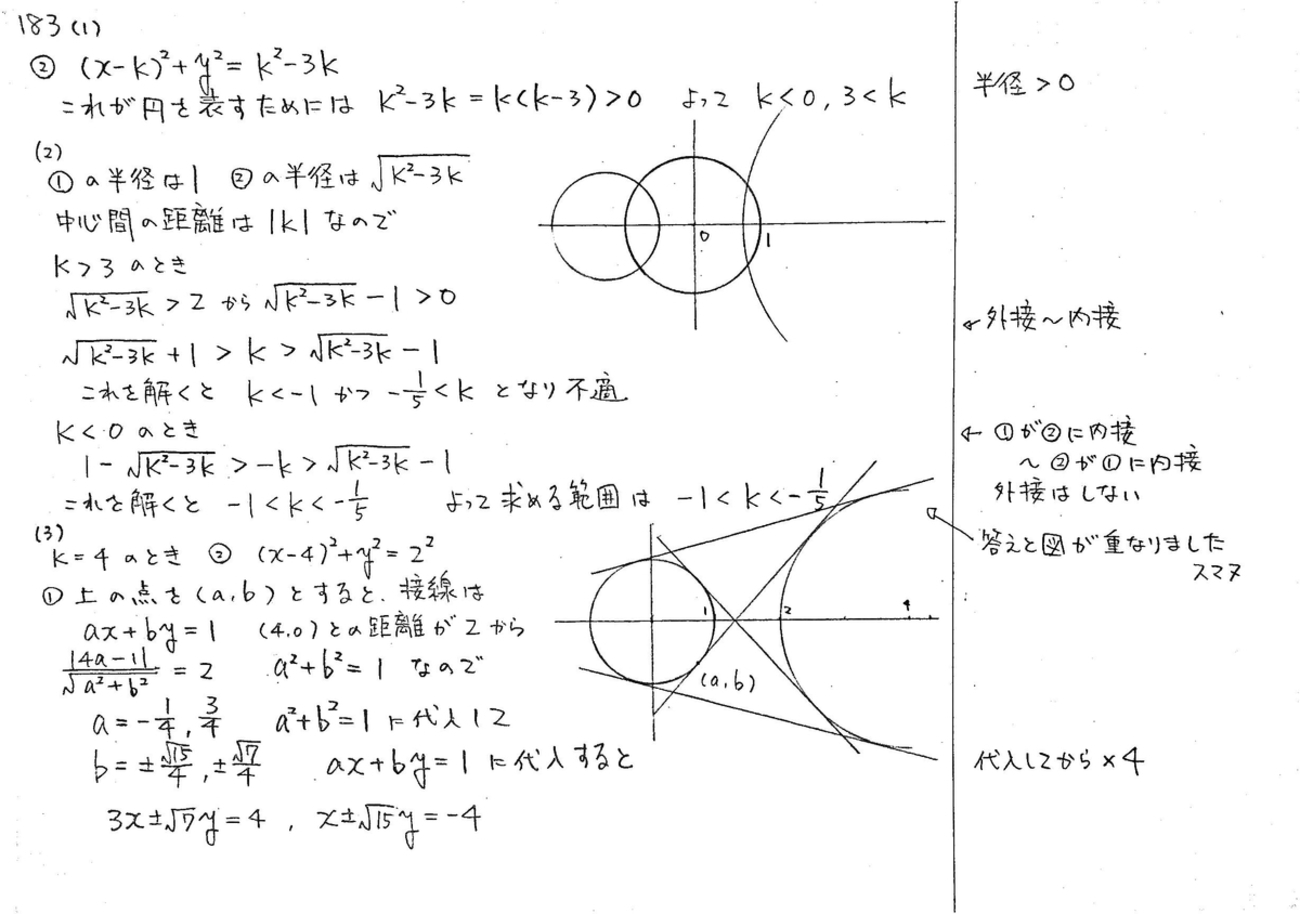 183 (1)
② (x-k)²+y²=k²-3k
これが円を表すためには k²-3k=k(k-3)>0 よって k<0, 3<k
半径>0
(2)
①の半径は1 ②の半径は√(k²-3k)
中心間の距離は|k|なので
k>3のとき
√(k²-3k)>2から√(k²-3k)-1>0
√(k²-3k)+1>k>√(k²-3k)-1
←外接～内接
これを解くと k<-1かつ-1/5<kとなり不適
k<0のとき
1-√(k²-3k)>-k>√(k²-3k)-1
←①が②に内接
～②が①に内接
外接はしない
これを解くと -1<k<-1/5 よって求める範囲は -1<k<-1/5
0
1
(3)
k=4のとき ② (x-4)²+y²=2²
答えと図が重なりました
スマヌ
①上の点を(a,b)とすると、接線は
ax+by=1 (4,0)との距離が2から
|4a-1|/√(a²+b²)=2 a²+b²=1なので
a=-1/4, 3/4 a²+b²=1に代入して
b=±√15/4, ±√7/4 ax+by=1に代入すると
代入してから×4
3x±√7y=4, x±√15y=-4
1
2
4
(a,b)